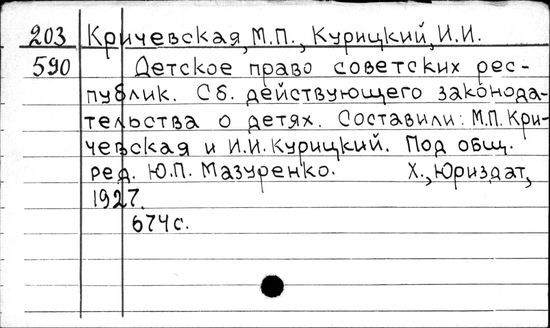 203 Кричевская, М.П., Курицкий, И.И.
590 Детское право советских рес-
публик. Сб. действующего законода-
тельства о детях. Составили: М.П. Кри-
чевская и И.И. Курицкий. Под общ.
ред. Ю.П. Мазуренко. Х., Юриздат,
1927.
674 с.